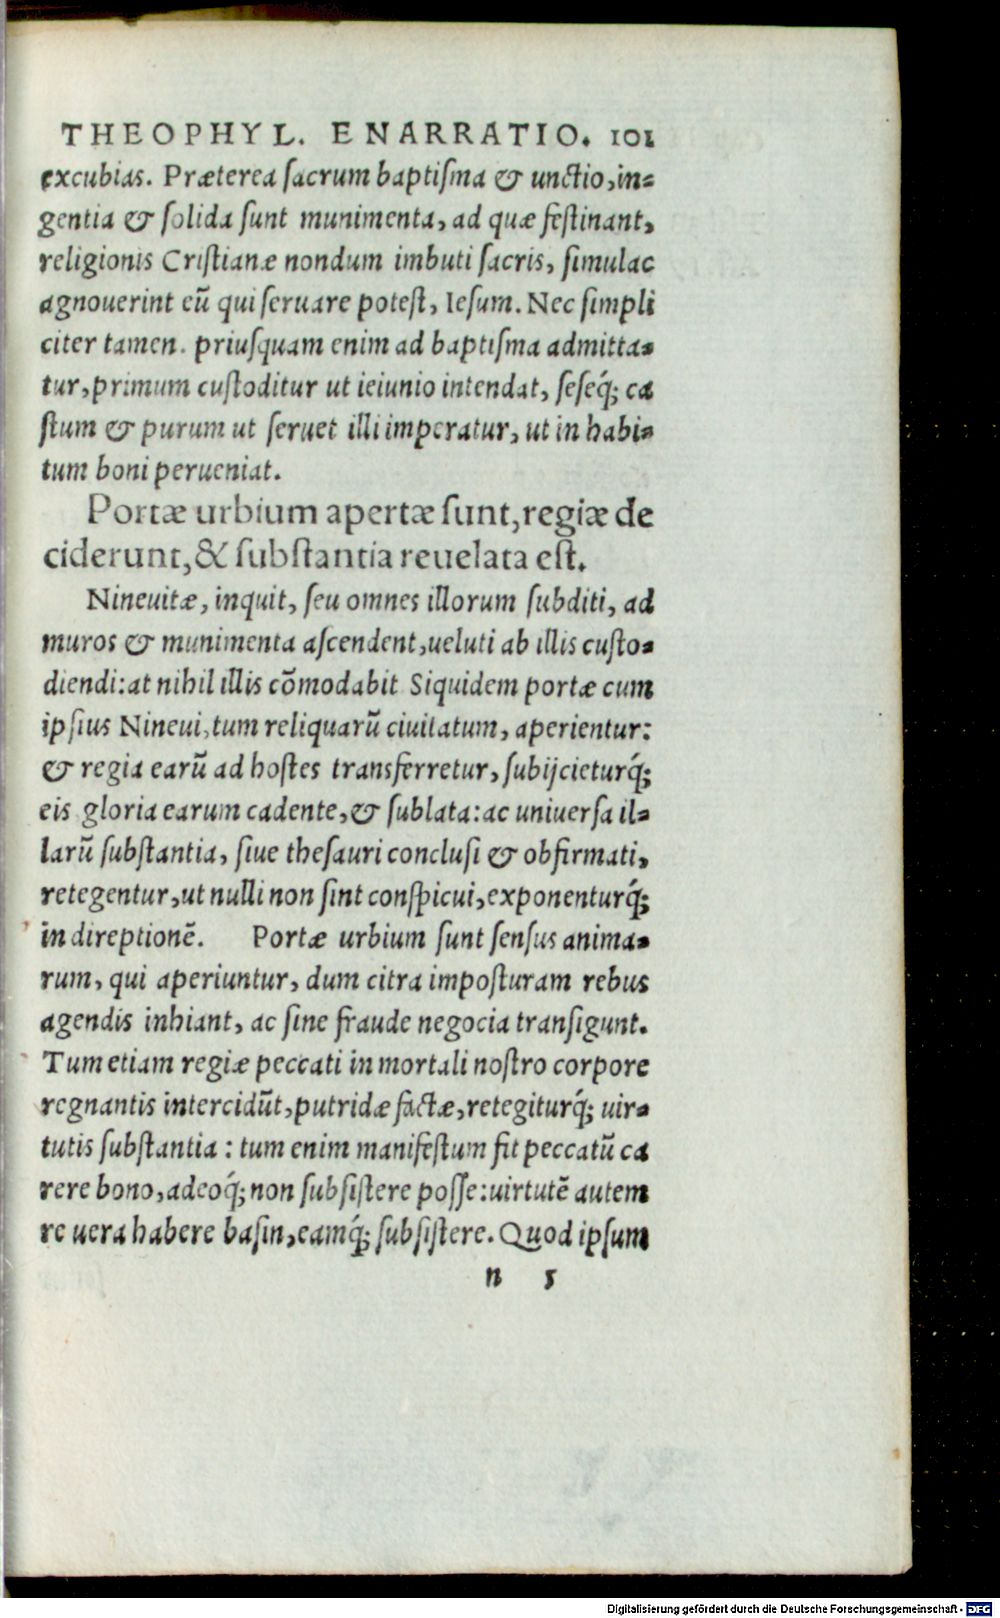 THEOPHYL. ENARRATIO. 101
excubias. Præterea ſacrum baptiſma & unctio, in=
gentia & ſolida ſunt munimenta, ad quæ feſtinant,
religionis Criſtianæ nondum imbuti ſacris, ſimulac
agnouerint eũ qui ſeruare poteſt, Ieſum. Nec ſimpli
citer tamen. priuſquam enim ad baptiſma admitta=
tur, primum cuſtoditur ut ieiunio intendat, ſeſeq́; ca
ſtum & purum ut ſeruet illi imperatur, ut in habi=
tum boni perueniat.
Portæ urbium apertæ ſunt, regiæ de
ciderunt, & ſubſtantia reuelata eſt.
Nineuitæ, inquit, ſeu omnes illorum ſubditi, ad
muros & munimenta aſcendent, ueluti ab illis cuſto=
diendi: at nihil illis cõmodabit Siquidem portæ cum
ipſius Nineui, tum reliquarũ ciuitatum, aperientur:
& regia earũ ad hoſtes transferretur, ſubijcieturq́;
eis gloria earum cadente, & ſublata: ac uniuerſa il=
larũ ſubſtantia, ſiue theſauri concluſi & obfirmati,
retegentur, ut nulli non ſint conſpicui, exponenturq́;
in direptionẽ. Portæ urbium ſunt ſenſus anima=
rum, qui aperiuntur, dum citra impoſturam rebus
agendis inhiant, ac ſine fraude negocia tranſigunt.
Tum etiam regiæ peccati in mortali noſtro corpore
regnantis intercidũt, putridæ factæ, retegiturq́; uir=
tutis ſubſtantia: tum enim manifeſtum fit peccatũ ca
rere bono, adeoq́; non ſubſiſtere poſſe: uirtutẽ autem
re uera habere baſin, eamq́; ſubſiſtere. Quod ipſum
n 5
Digitalisierung gefördert durch die Deutsche Forschungsgemeinschaft - DFG